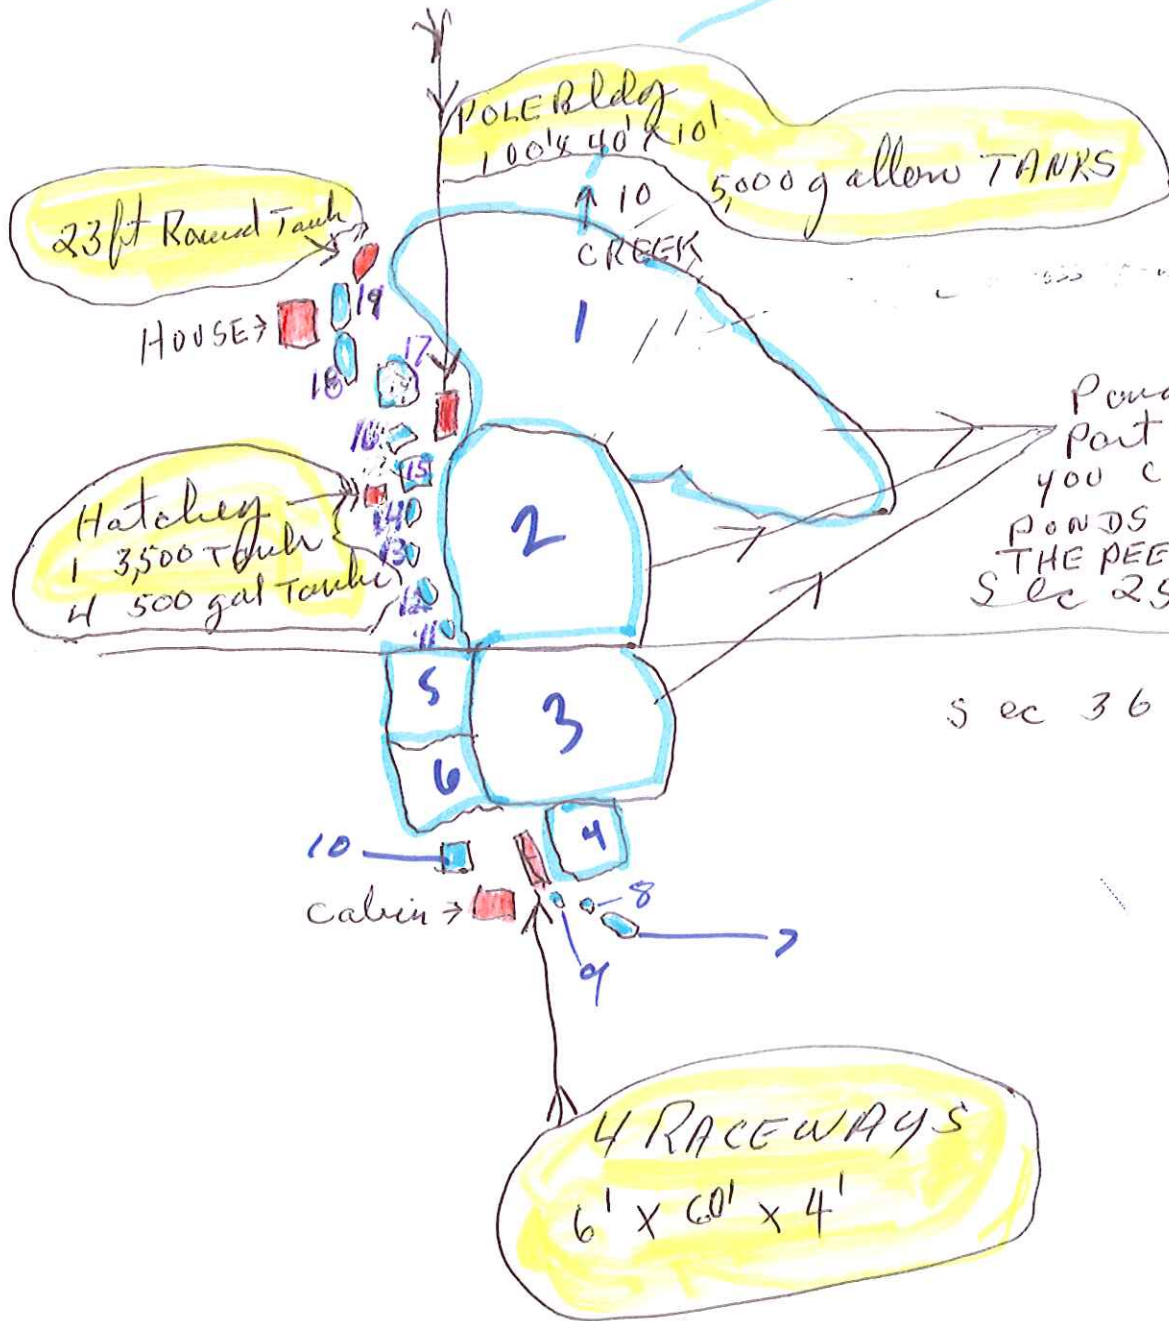 POLE Bldg
100' x 40' x 10'
10
5,000 gallon TANKS
CREEK
23ft Round Tank
HOUSE
19
18
17
1
16
15
Hatchey
1 3,500 Tank
4 500 gal Tanks
14
13
12
11
2
Pond
Part
you c
PONDS
THE DEE
Sec 25
5
3
6
Sec 36
4
10
Cabin
8
9
7
4 RACEWAYS
6' X 60' x 4'